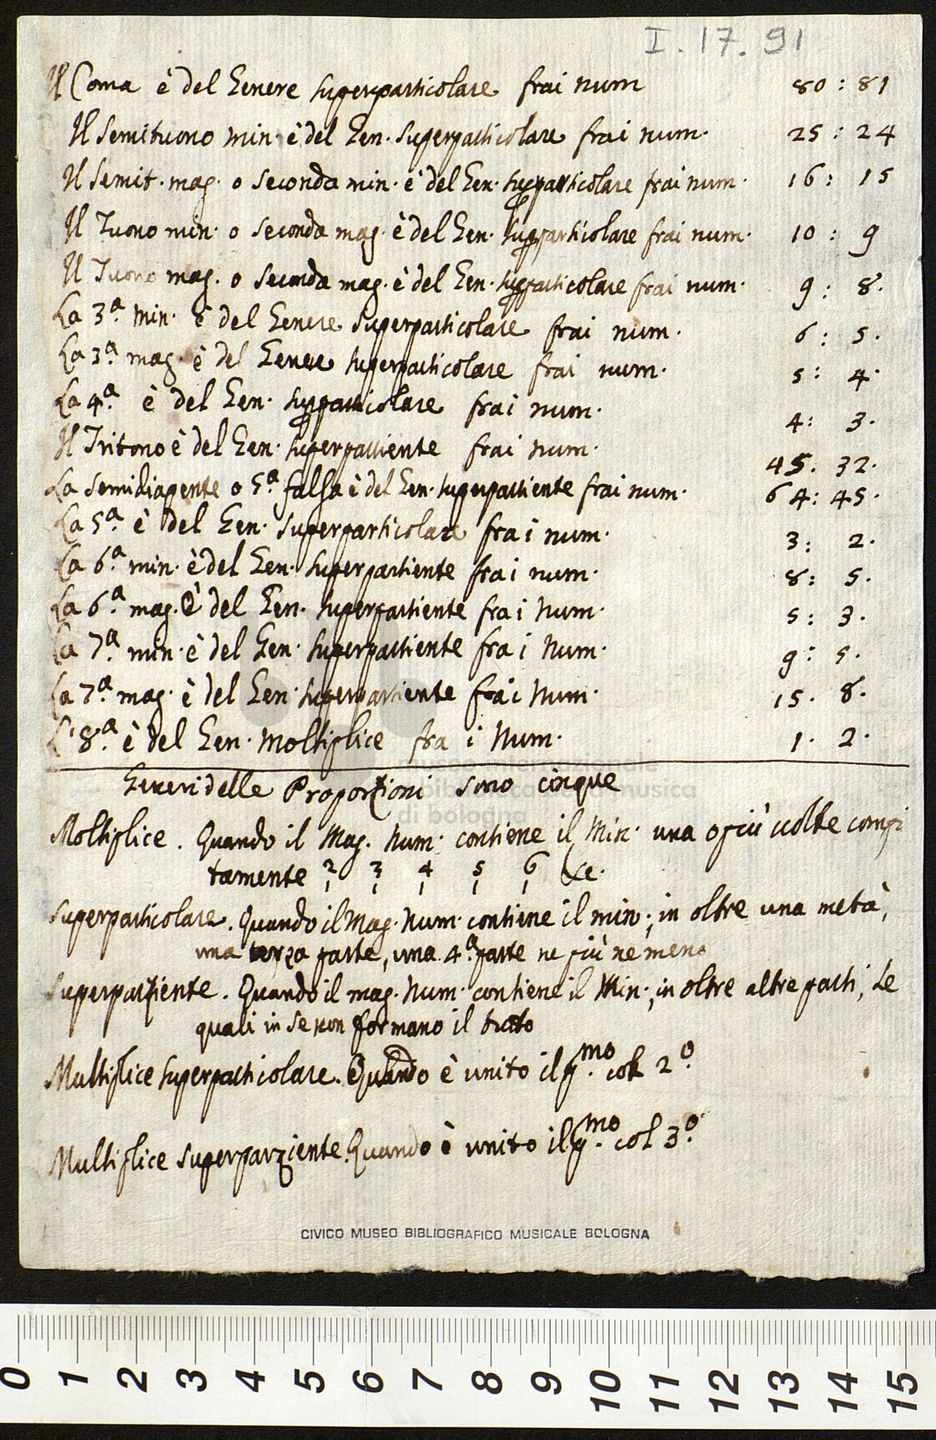 I. 17. 91
Il Coma è del Genere superparticolare frai num 80 : 81
Il Semituono min. è del Gen. superparticolare frai num. 25 : 24
Il Semit. mag. o seconda min. è del Gen. superparticolare frai num. 16 : 15
Il Tuono min. o seconda mag. è del Gen. superparticolare frai num. 10 : 9
Il Tuono mag. o seconda mag. è del Gen. superparticolare frai num. 9 : 8.
La 3ª min. è del Genere superparticolare frai num. 6 : 5.
La 3ª mag. è del Genere superparticolare frai num. 5 : 4.
La 4ª è del Gen. superparticolare frai num. 4 : 3.
Il Tritono è del Gen. superpartiente frai num. 45. 32.
La Semidiapente o 5ª falsa è del Gen. superpartiente frai num. 64 : 45.
La 5ª è del Gen. superparticolare fra i num. 3 : 2.
La 6ª min. è del Gen. superpartiente fra i num. 8 : 5.
La 6ª mag. È del Gen. superpartiente fra i num. 5 : 3.
La 7ª min. è del Gen. superpartiente fra i num. 9 : 5.
La 7ª mag. è del Gen. superpartiente frai num. 15. 8.
L'8ª è del Gen. moltiplice fra i num. 1. 2.
museo internazionale
e biblioteca della musica
di bologna
Generi delle Proporzioni sono cinque
Moltiplice. Quando il Mag. num. contiene il min. una o più volte compi
tamente 2/1 3/1 4/1 5/1 6/1 &c.
Superparticolare. Quando il Mag. num. contiene il min., in oltre una metà,
una terza parte, una 4ª parte ne più ne meno
Superparziente. Quando il mag. num. contiene il Min., in oltre altre parti, Le
quali in se non formano il tutto
Multiplice superparticolare. Quando è unito il pmo. col 2º
Multiplice superparziente. Quando è unito il pmo. col 3º
CIVICO MUSEO BIBLIOGRAFICO MUSICALE BOLOGNA
0 1 2 3 4 5 6 7 8 9 10 11 12 13 14 15